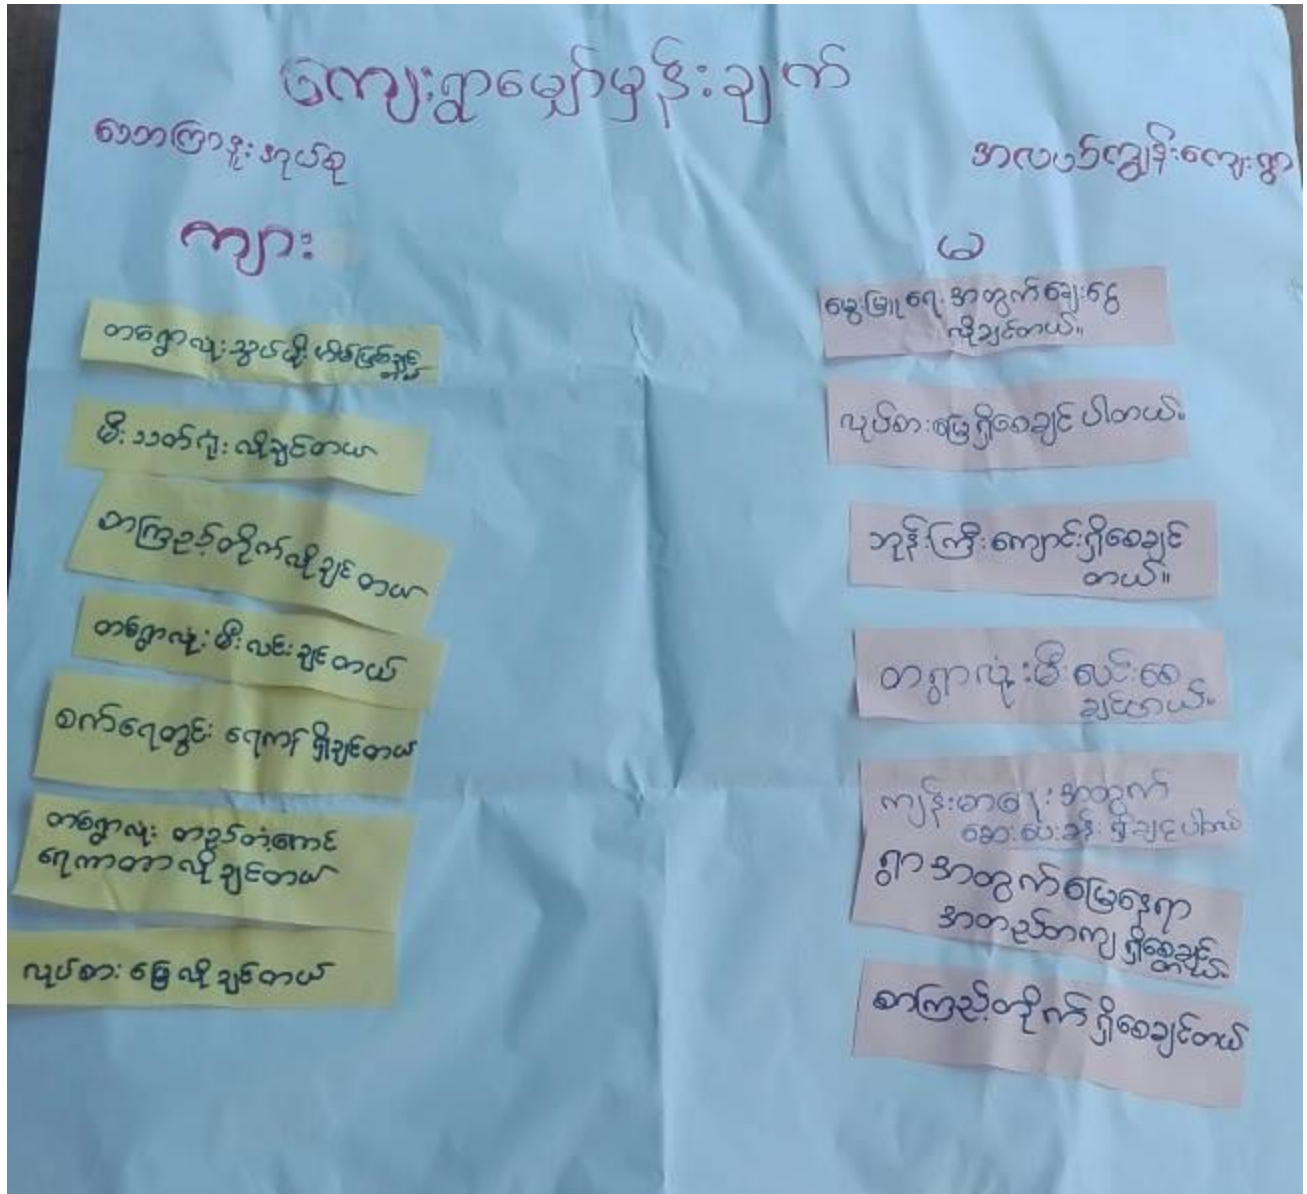 ကျေးရွာမျှော်မှန်းချက်
ဒေတကြာစုးအုယ်စု
အလယ်ကျွန်းကျေးရွာ
ကျား
မ
တစ်ရွာလုံး သွပ်မိုး အိမ်ဖြစ်ချင်
တယ်
မီးသတ်ဂုံး လိုချင်တယ်
စာကြည့်တိုက်လိုချင်တယ်
တစ်ရွာလုံး မီးလင်းချင်တယ်
စက်ရေတွင်း ရေကန် ရှိချင်တယ်
တစ်ရွာလုံး တဥ်တံကောင်
ရေကာတာလိုချင်တယ်
လုပ်စားမြေလိုချင်တယ်
မွေးမြူရေးအတွက်ချေးငွေ
လိုချင်တယ်။
လုပ်စားမြေရှိစေချင်ပါတယ်။
ဘုန်းကြီးကျောင်းရှိစေချင်
တယ်။
တရွာလုံးမီးလင်းစေ
ချင်တယ်။
ကျန်းမာရေးအတွက်
ဆေးပေးခန်းရှိချင်ပါတယ်
ရွာအတွက်မြေနေရာ
အတည်တကျရှိစေချင်
တယ်။
စာကြည့်တိုက်ရှိစေချင်တယ်